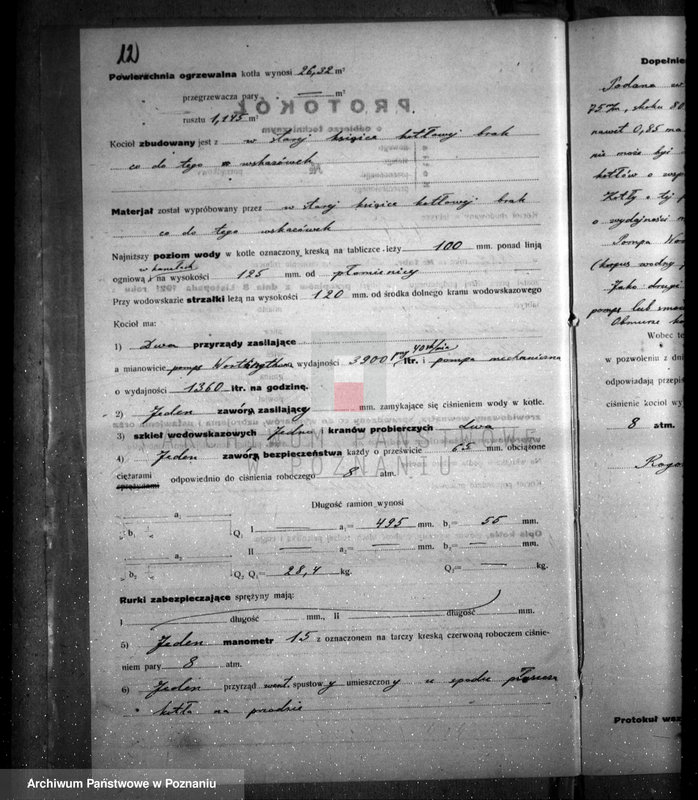 12
Powierzchnia ogrzewalna kotła wynosi 26,32 m²
przegrzewacza pary — m²
rusztu 1,195 m²
Kocioł zbudowany jest z w starej książce kotłowej brak
co do tego wskazówek
Materjał został wypróbowany przez w starej książce kotłowej brak
co do tego wskazówek
Najniższy poziom wody w kotle oznaczony kreską na tabliczce leży 100 mm. ponad linją
w kanałach
ogniową i na wysokości 125 mm. od płomienicy
Przy wodowskazie strzałki leżą na wysokości 120 mm. od środka dolnego kranu wodowskazowego
Kocioł ma:
1) Dwa przyrządy zasilające
a mianowicie pompę wydajności 3900 ltr. i pompa mechaniczna
o wydajności 1360 ltr. na godzinę.
2) Jeden zawór zasilający mm. zamykające się ciśnieniem wody w kotle.
3) szkieł wodowskazowych Jedno i kranów probierczych Dwa
4) Jeden zawór bezpieczeństwa każdy o prześwicie 65 mm. obciążone
ciężarami
sprężynami odpowiednio do ciśnienia roboczego 8 atm.
Długość ramion wynosi
a₁
b₁ Q₁ I — a₁= 495 mm. b₁= 55 mm.
a₂ II — a₂= — mm. b₂= — mm.
b₂ Q₂ Q₁= 28,4 kg. Q₂= — kg.
Rurki zabezpieczające sprężyny mają:
I długość mm., II długość mm.
5) Jeden manometr 15 z oznaczonem na tarczy kreską czerwoną roboczem ciśnie-
niem pary 8 atm.
6) Jeden przyrząd went. spustowy umieszczony w spodzie płaszcza
kotła na przodzie
Dopełnie
Podana w
75 skoku 80
nawet 0,85
nie może być
kotłów o
Kotły o tej
o wydajności
Pompa
(korpus wodny
Jako drugi
pompę lub
Obmurze
Wobec te
w pozwoleniu z dni
odpowiadają przepis
ciśnienie kocioł wy
8 atm.
Protokuł wez
ARCHIWUM PAŃSTWOWE
W POZNANIU
PROTOKÓŁ
o odbiorze technicznym
Archiwum Państwowe w Poznaniu